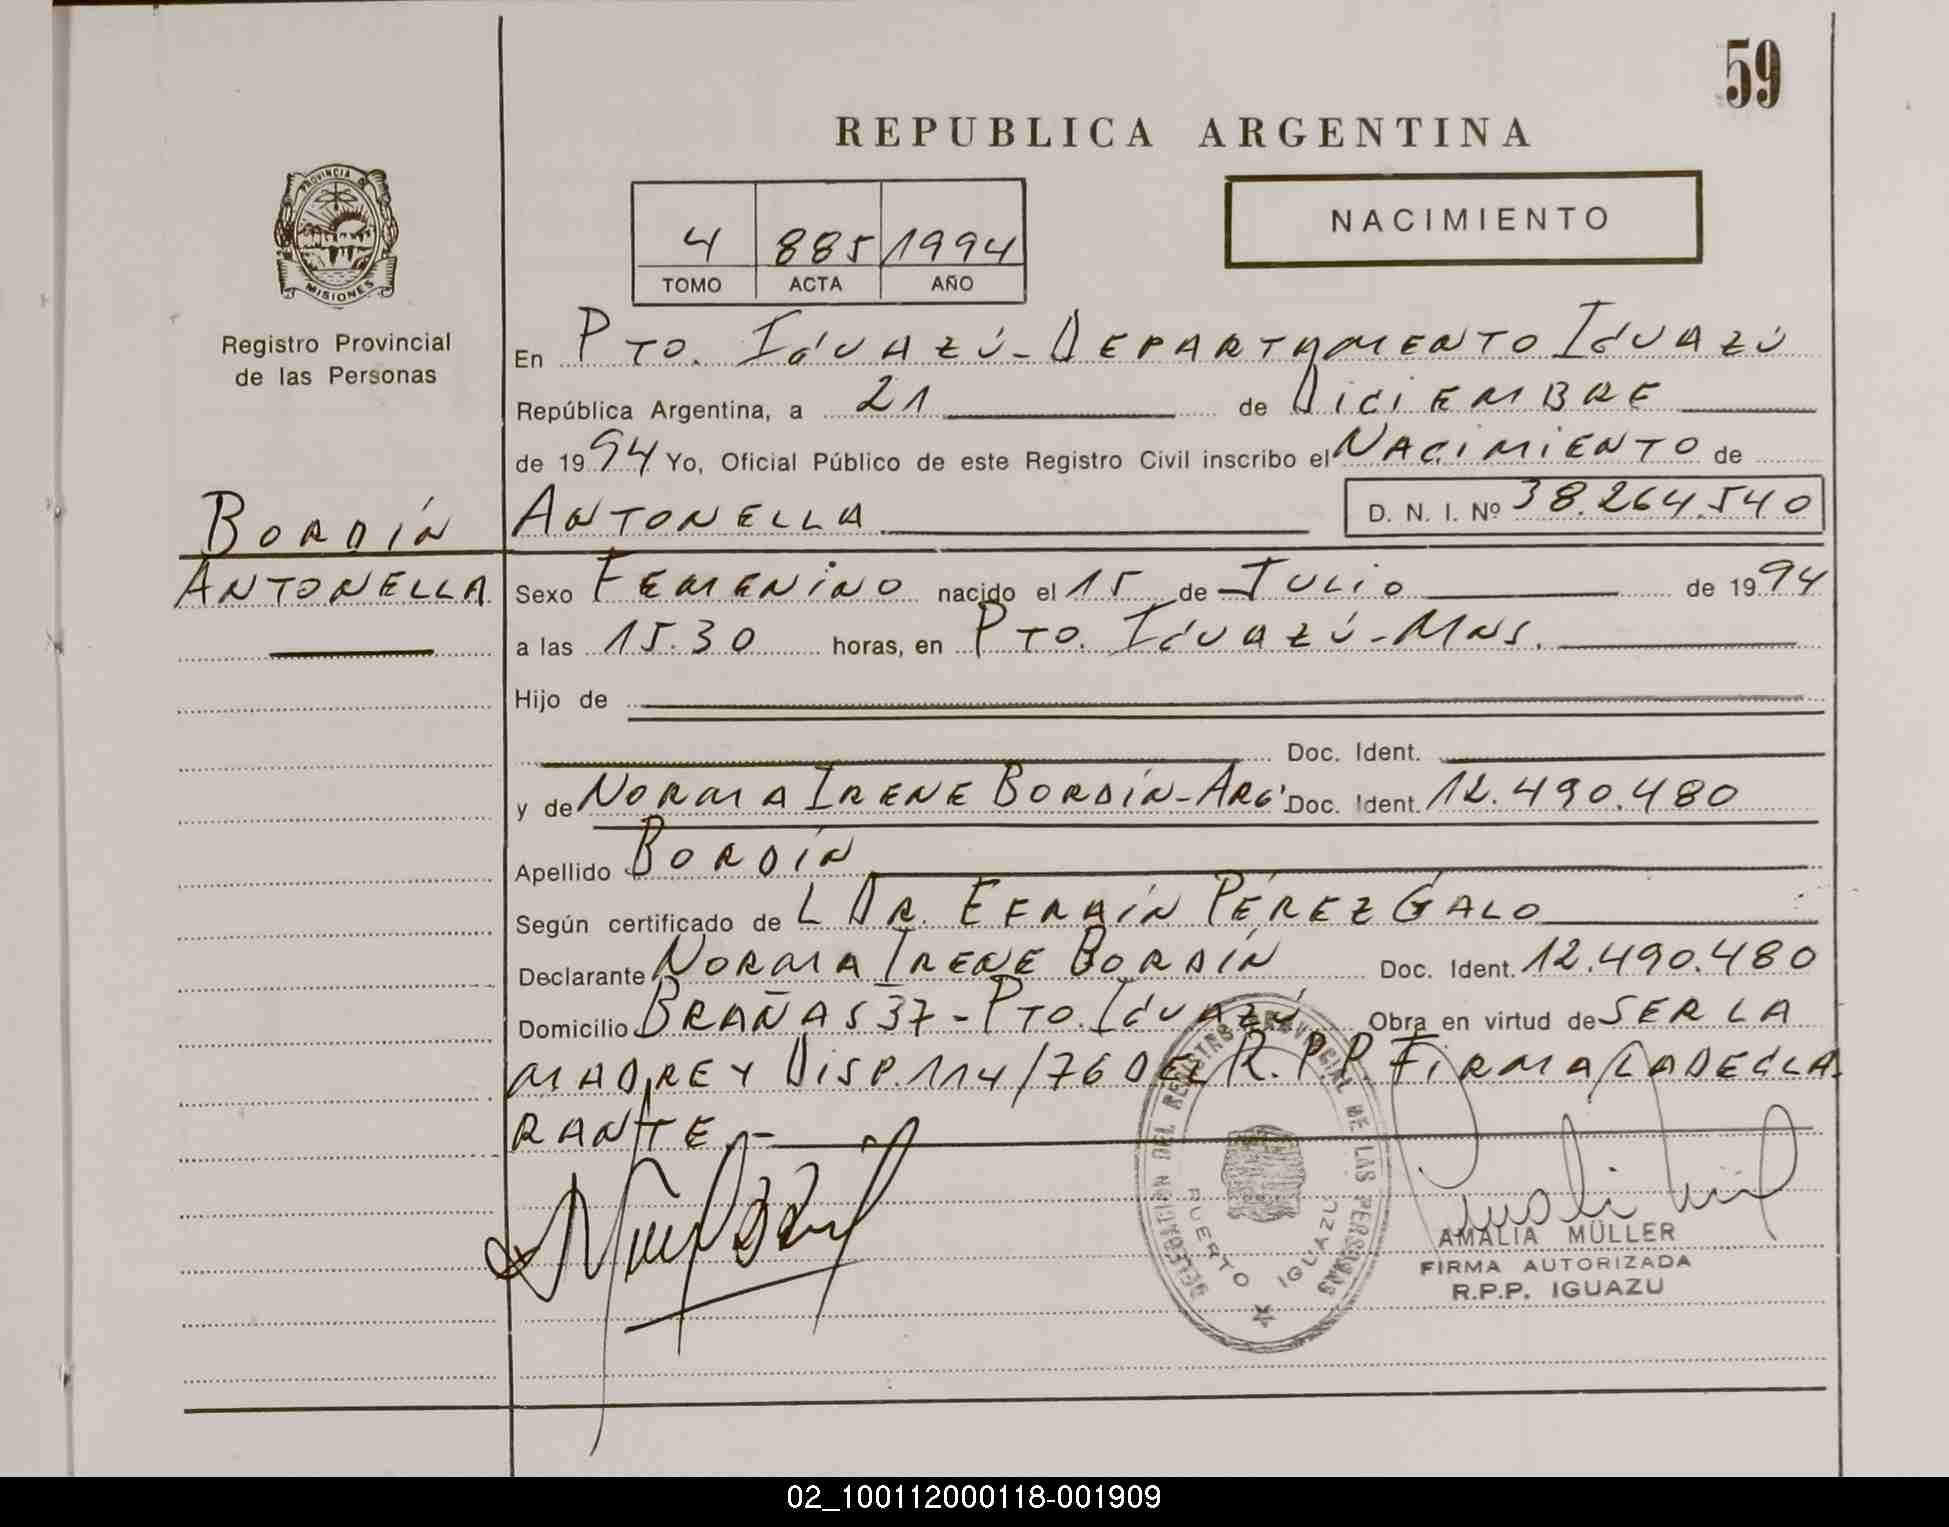 59
REPUBLICA ARGENTINA
PROVINCIA DE
MISIONES
Registro Provincial
de las Personas
4 885 1994
TOMO ACTA AÑO
NACIMIENTO
En PTO. IGUAZÚ - DEPARTAMENTO IGUAZÚ
República Argentina, a 21 de DICIEMBRE
de 1994 Yo, Oficial Público de este Registro Civil inscribo el NACIMIENTO de
BORDÍN
ANTONELLA
ANTONELLA D. N. I. Nº 38.264.540
Sexo FEMENINO nacido el 15 de JULIO de 1994
a las 15.30 horas, en PTO. IGUAZÚ - MNS.
Hijo de
Doc. Ident.
y de NORMA IRENE BORDÍN - ARG. Doc. Ident. 12.490.480
Apellido BORDÍN
Según certificado de L DR. EFRAÍN PÉREZ GALO
Declarante NORMA IRENE BORDÍN Doc. Ident. 12.490.480
Domicilio BRAÑAS 37 - PTO. IGUAZÚ Obra en virtud de SER LA
MADRE Y DISP. 114/76 DEL R.P.P. FIRMA LA DECLA
RANTE.-
DELEGACION DEL REGISTRO PROVINCIAL DE LAS PERSONAS
PUERTO IGUAZU
AMALIA MÜLLER
FIRMA AUTORIZADA
R.P.P. IGUAZU
02_100112000118-001909